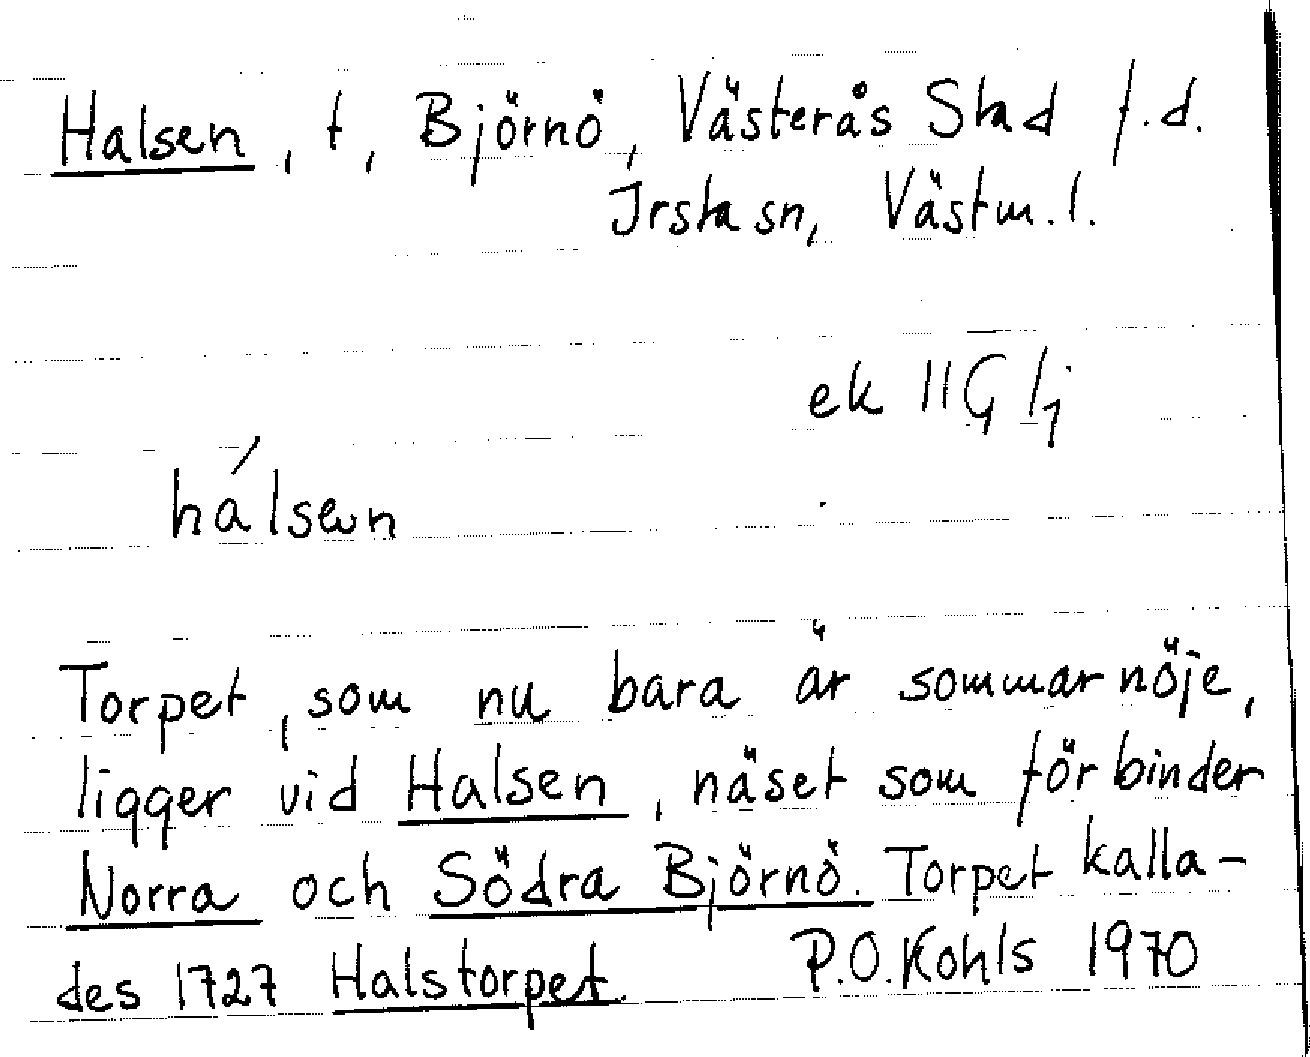 Halsen, t, Björnö, Västerås Stad f.d.
Irsta sn, Västm. l.
ek 11G 1j
hálsen
Torpet, som nu bara är sommarnöje,
ligger vid Halsen, näset som förbinder
Norra och Södra Björnö. Torpet kalla-
des 1727 Halstorpet. P.O. Kohls 1970